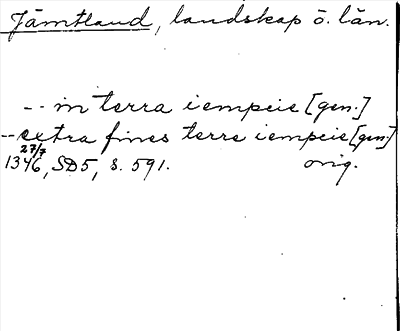 Jämtland, landskap o. län.
-- in terra iempcie [gen.]
-- extra fines terre iempcie [gen.]
27/7
1346, SD5, s. 591. orig.